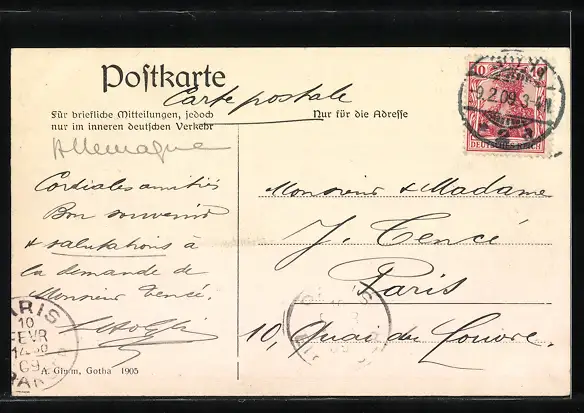 Postkarte
Carte postale
Für briefliche Mitteilungen, jedoch
nur im inneren deutschen Verkehr
Nur für die Adresse
Allemagne
10 10
DEUTSCHES REICH
9.2.09. 3-4N
Cordiales amitiés
Bon souvenir
& salutations à
la demande de
Monsieur Tencé.
Monsieur & Madame
J. Tencé
Paris
10, Quai du Louvre.
PARIS
10
FEVR
09
A. Glum, Gotha 1905